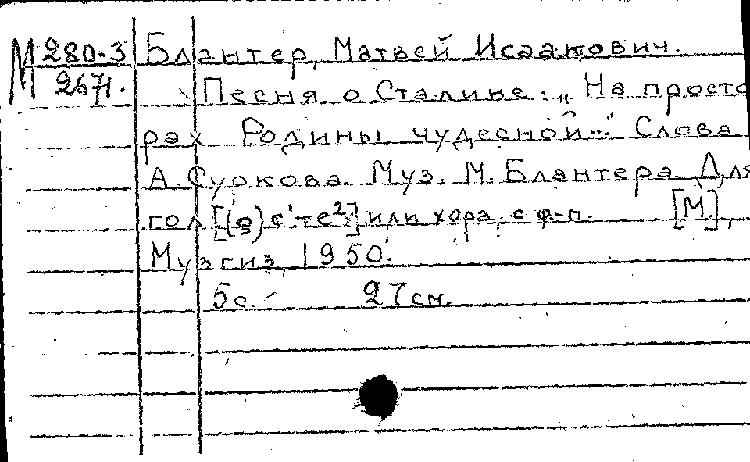 М 280-3 Блантер, Матвей Исаакович.
267. Песня о Сталине: „На просто
рах Родины чудесной..." Слова
А. Суркова. Муз. М. Блантера Для
гол [(е) с'-те²] или хора с ф-п. [М],
Музгиз, 1950.
5с. 27см.